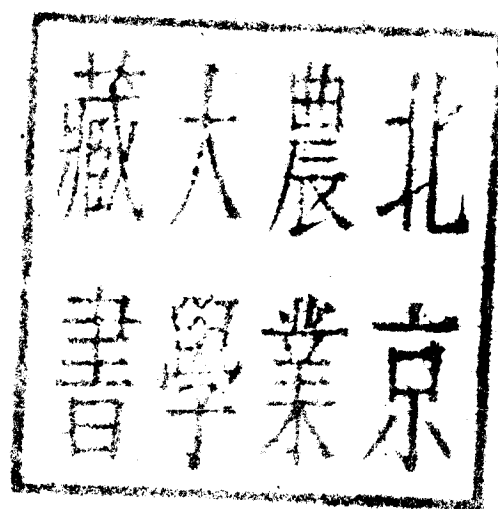 北京
農業
大學
藏書